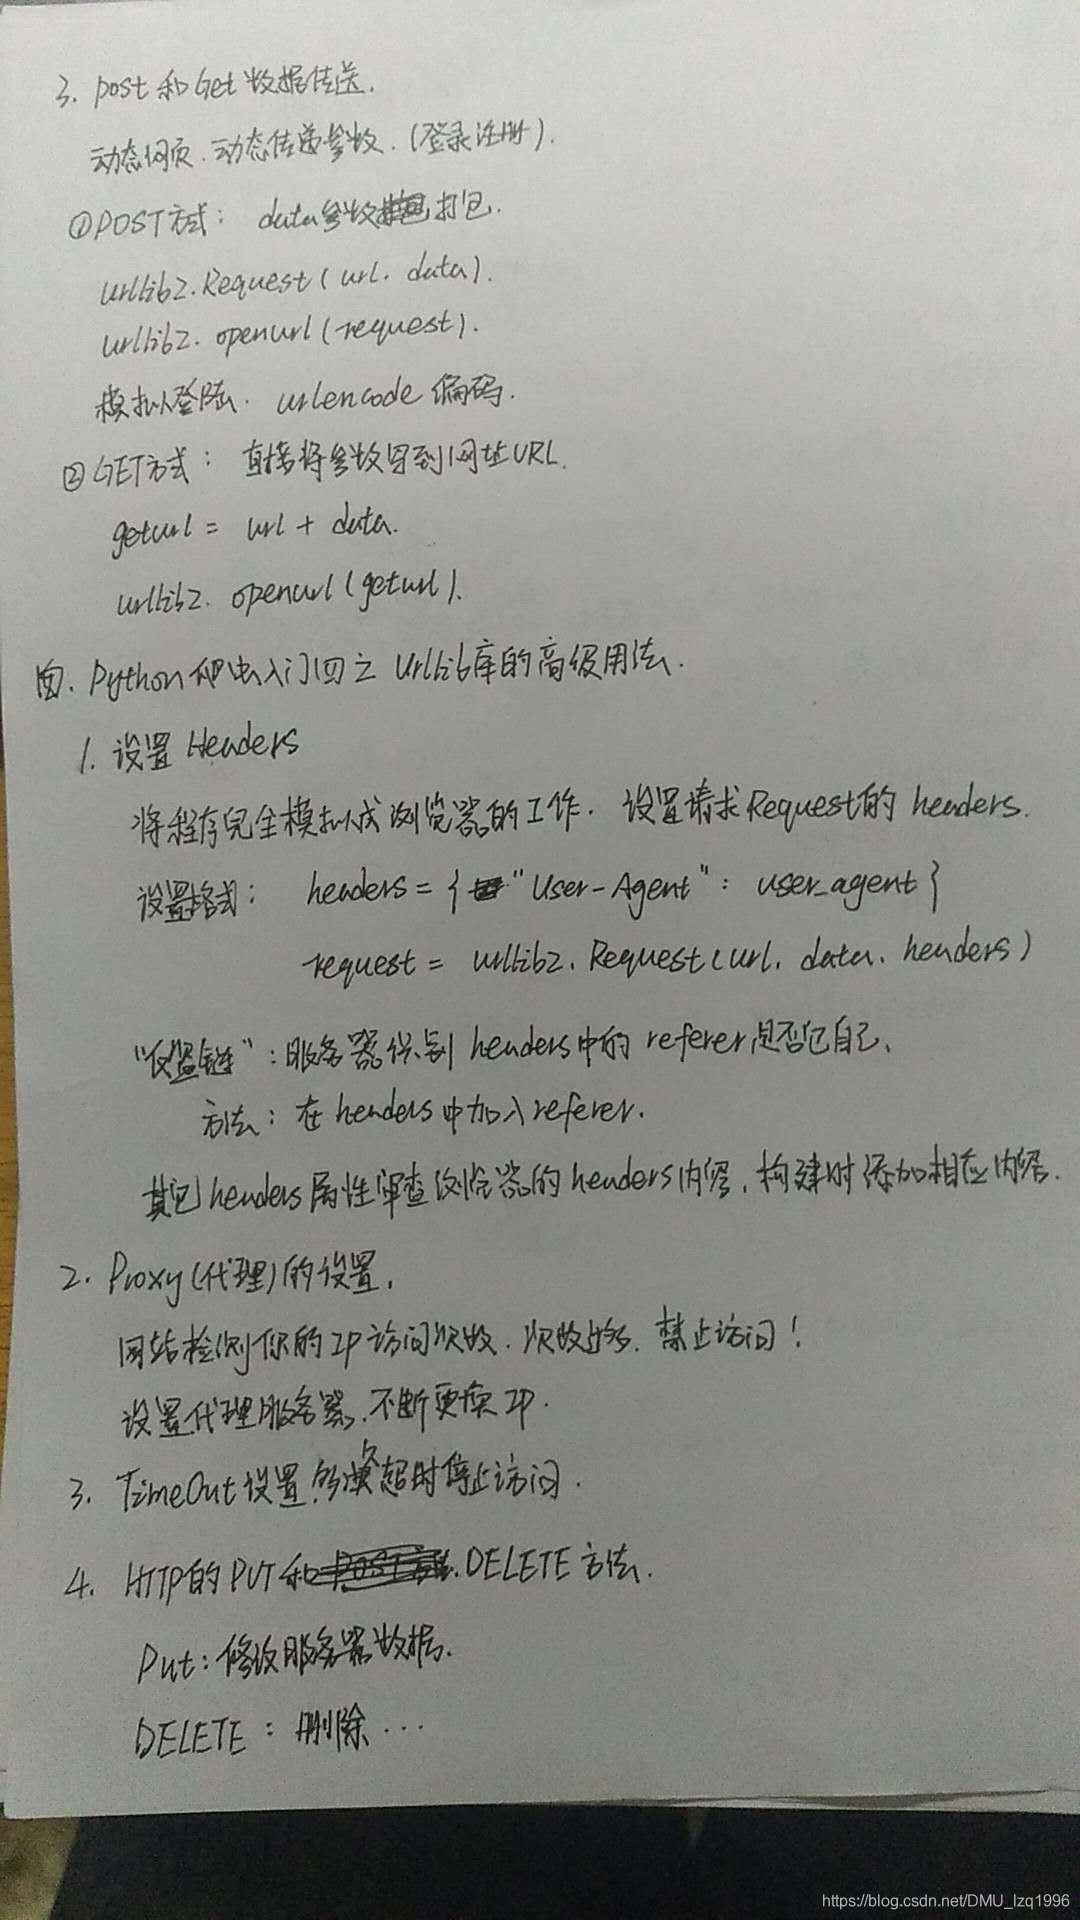 3. post和Get数据传送.
动态网页.动态传递参数.(登录注册).
①POST方式: data参数打包.
urllib2.Request(url. data).
urllib2. openurl(request).
模拟登陆. urlencode 编码.
②GET方式: 直接将参数写到网址URL.
geturl = url + data.
urllib2. openurl(geturl).
四. Python爬虫入门四之 Urllib库的高级用法.
1. 设置 Headers
将程序完全模拟成浏览器的工作. 设置请求Request的 headers.
设置格式: headers = { "User-Agent": user_agent }
request = urllib2. Request(url. data. headers)
"反盗链": 服务器识别 headers中的 referer是否它自己.
方法: 在headers中加入referer.
其它headers属性审查浏览器的headers内容, 构建时添加相应内容.
2. Proxy(代理)的设置.
网站检测你的IP访问次数. 次数过多. 禁止访问!
设置代理服务器.不断更换IP.
3. TimeOut设置. 超时停止访问.
4. HTTP的PUT和 DELETE方法.
Put: 修改服务器数据.
DELETE: 删除 ...
https://blog.csdn.net/DMU_lzq1996